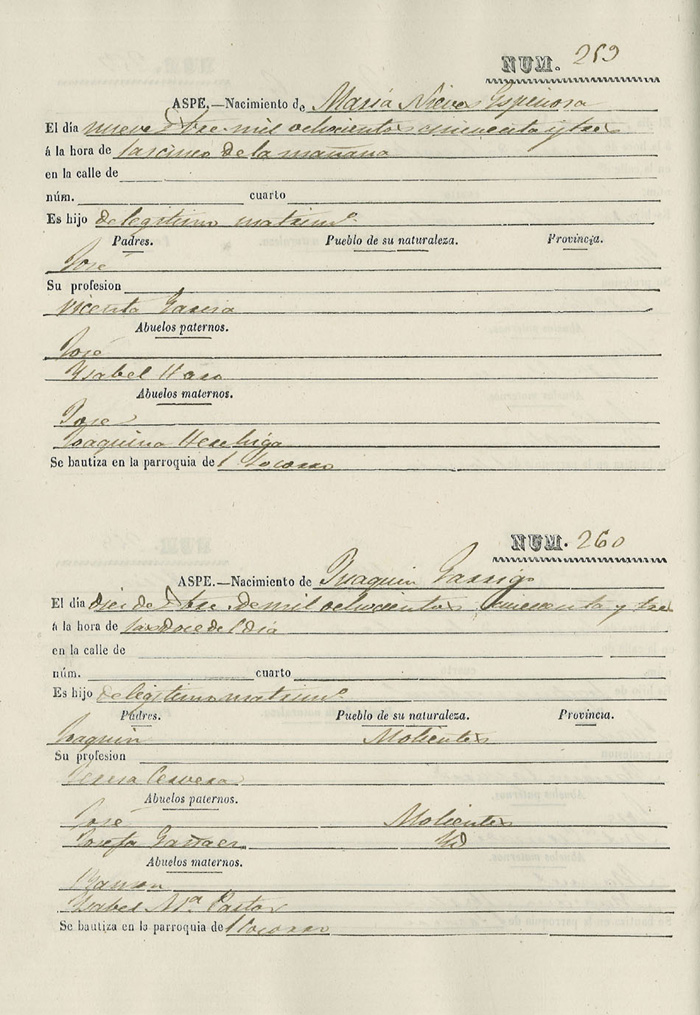 NUM. 259
ASPE.—Nacimiento de María Nieves Espinosa
El día nueve Xbre mil ochocientos cincuenta y tres
á la hora de las cinco de la mañana
en la calle de
núm. cuarto
Es hijo de legitimo matrimo.
Padres. Pueblo de su naturaleza. Provincia.
José
Su profesion
Vicenta Garcia
Abuelos paternos.
José
Ysabel
Abuelos maternos.
Jose
Joaquina
Se bautiza en la parroquia de l Socorro
NUM. 260
ASPE.—Nacimiento de Joaquin Garrigo
El día diez de Xbre de mil ochocientos cincuenta y tres
á la hora de las doce del dia
en la calle de
núm. cuarto
Es hijo de legitimo matrimo.
Padres. Pueblo de su naturaleza. Provincia.
Joaquin
Su profesion
Teresa Cervera
Abuelos paternos.
José
Josefa Yd
Abuelos maternos.
Ramon
Ysabel Mª Pastor
Se bautiza en la parroquia de l Socorro